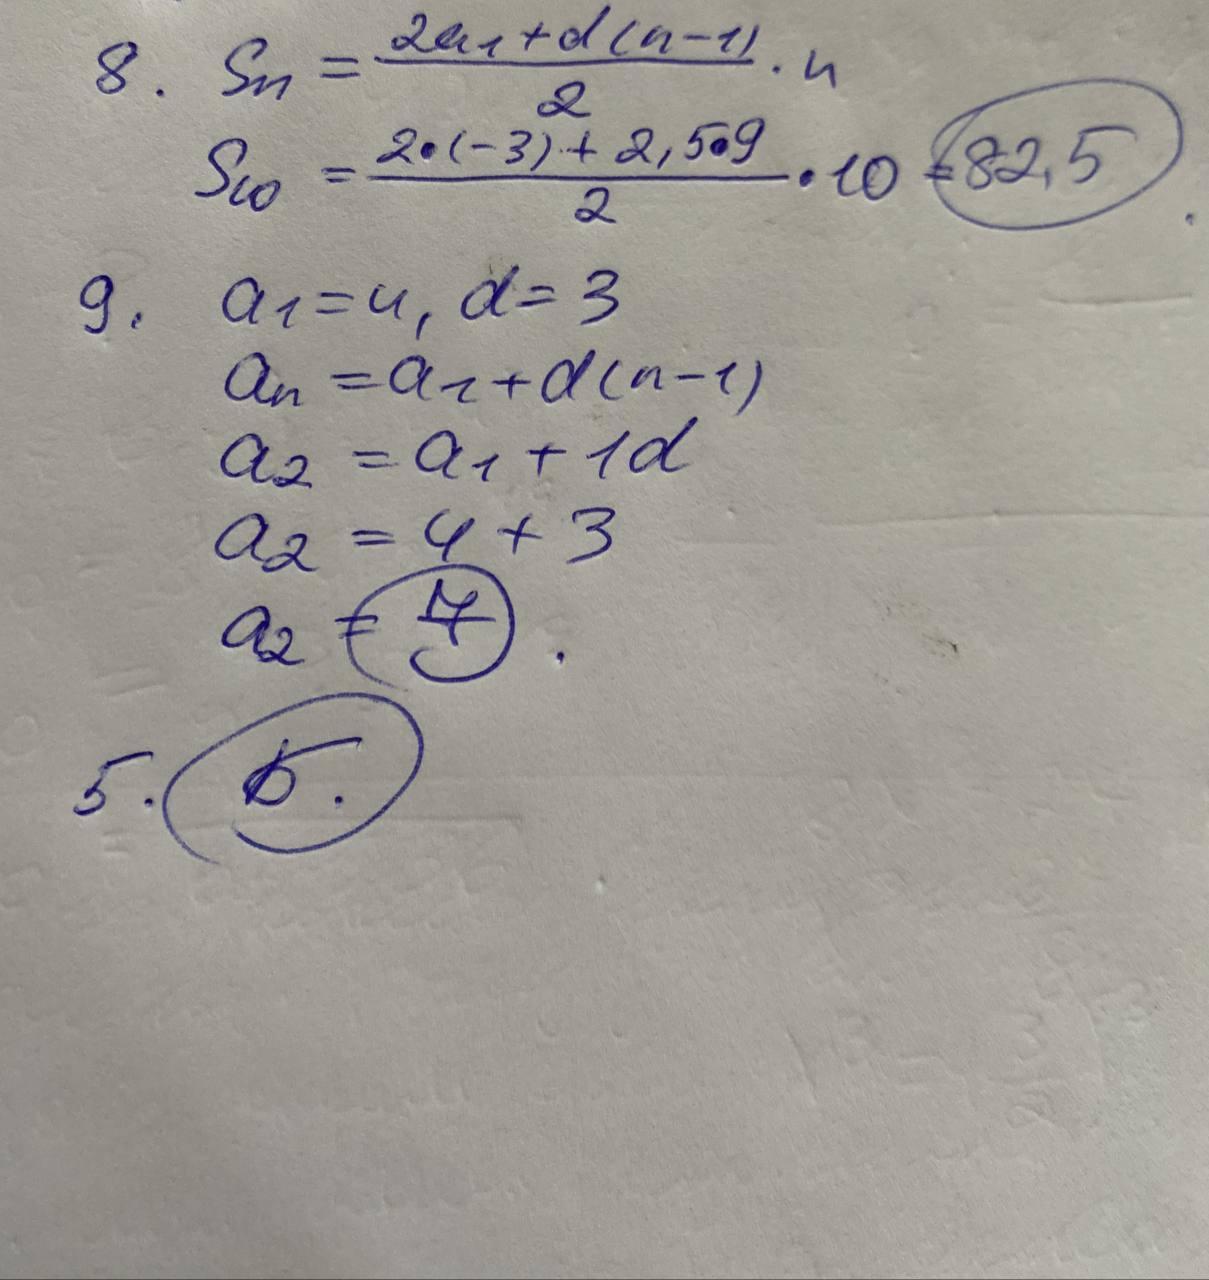 8. Sn = (2a1+d(n-1))/2 · n
S10 = (2•(-3)+2,5•9)/2 •10 = 82,5
9. a1=4, d=3
an = a1+d(n-1)
a2 = a1+1d
a2 = 4+3
a2 = 7.
5. Б.